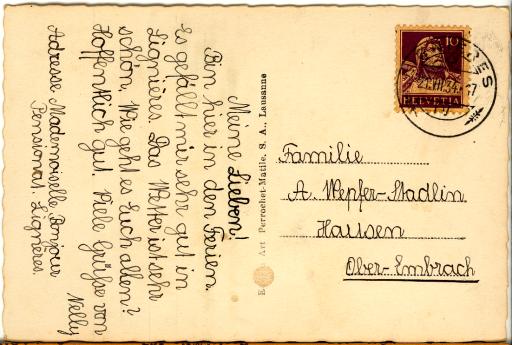 Meine Lieben!
Bin hier in den Ferien.
Es gefällt mir sehr gut in
Lignières. Das Wetter ist sehr
schön. Wie geht es Euch allen?
Hoffentlich gut. Viele Grüsse von
Nelly
Adresse Mademoiselle Bonjour
Pensionat. Lignères.
Art Perrochet-Matile, S. A., Lausanne
10
HELVETIA
Familie
A. Wepfer-Stadlin
Hausen
Ober-Embrach